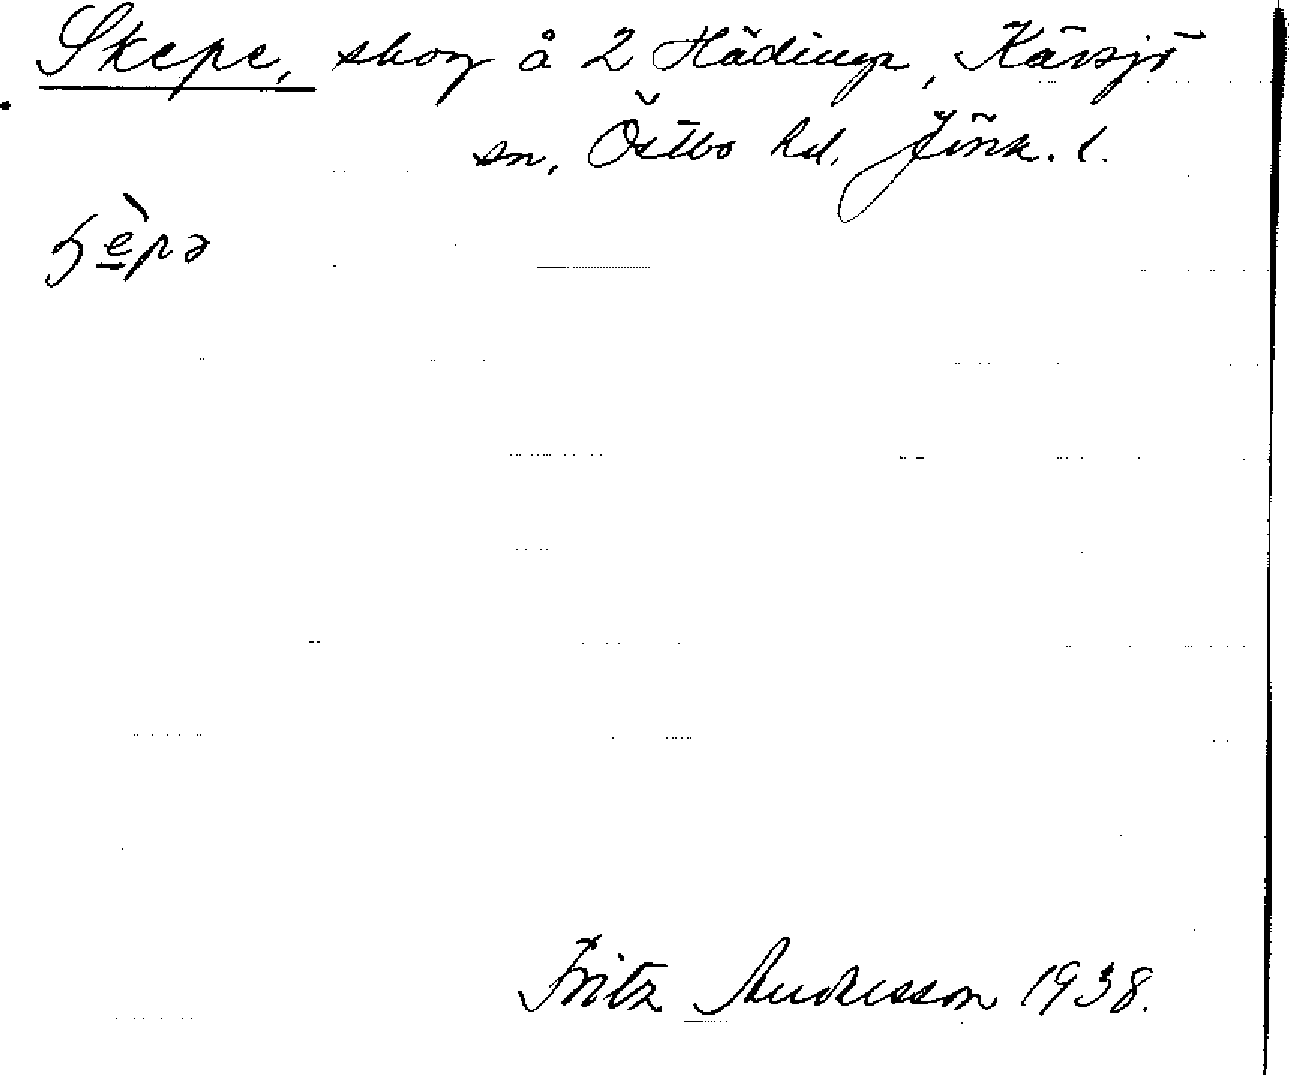 Skepe, skog å 2 Hädinge, Kävsjö
sn, Östbo hd. Jönk. l.
ɧèpə
Fritz Andresson 1938.